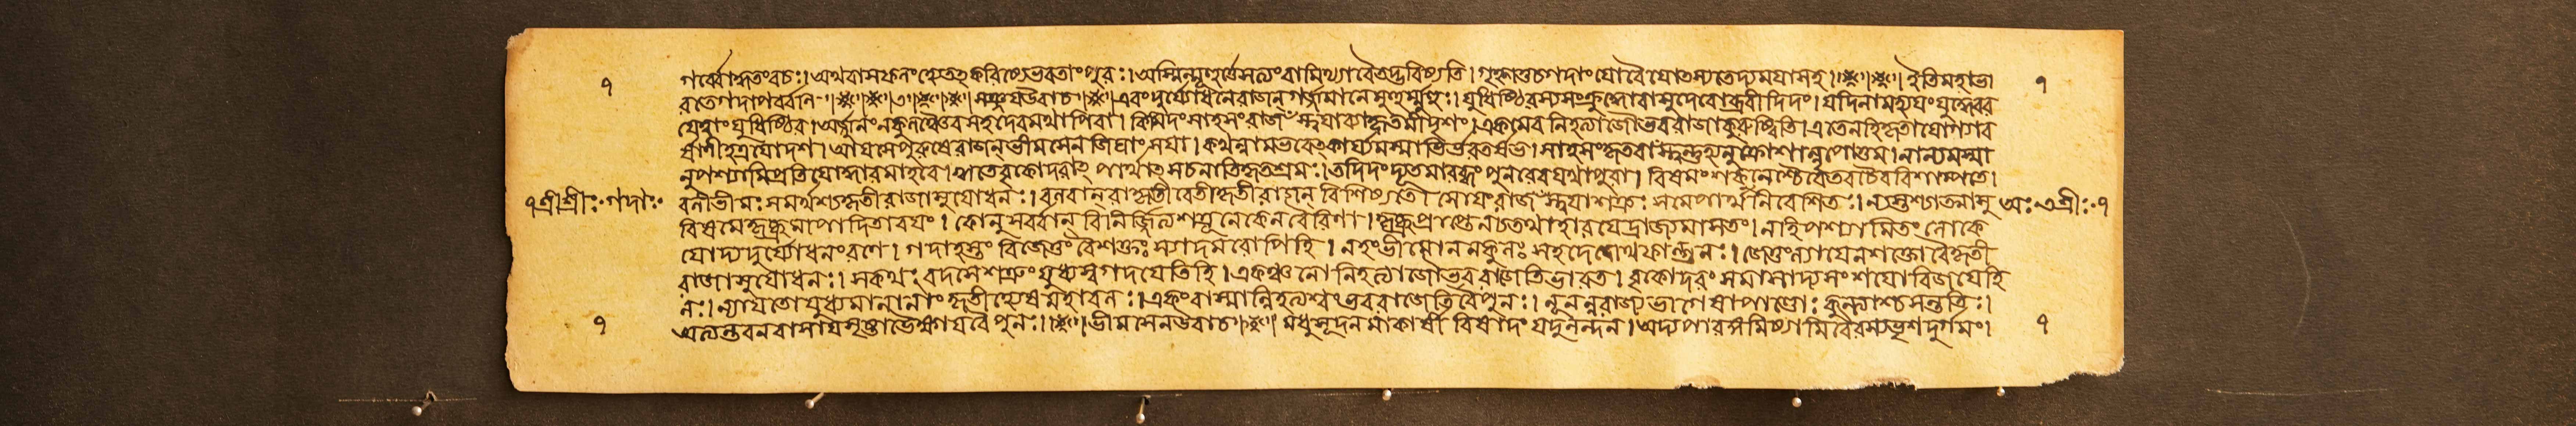 ১
গর্ব্বোদ্ধতংবচঃ। অথবাসফলংহ্যেতৎকরিষ্যেভবতাংপুরঃ। অস্মিন্মুহূর্ত্তেসত্যংবামিথ্যাবৈতদ্ভবিষ্যতি। গৃহ্ণাতুচগদাংযোবৈযোত্স্যতেদ্যময়াসহ। ইতিমহাভা
১
রতেগদাপর্ব্বনি সঞ্জয়উবাচ এবংদুর্য্যোধনেরাজন্ গর্জ্জমানেমুহুর্ম্মুহুঃ। যুধিষ্ঠিরস্যসংক্রুদ্ধোবাসুদেবোব্রবীদিদং। যদিনামহ্যয়ংযুদ্ধেবর
যেত্ত্বাংযুধিষ্ঠির। অর্জ্জুনংনকুলঞ্চৈবসহদেবমথাপিবা। কিমিদংসাহসংরাজংস্ত্বয়াব্যাহৃতমীদৃশং। একমেবনিহত্যাজৌভবরাজাকুরুষ্বিতি। এতেনহিকৃতাযোগ্যাব
র্ষাণীহত্রয়োদশ। আয়সেপুরুষেরাজন্ভীমসেনজিঘাংসয়া। কথন্নামভবেত্কার্য্যমস্মাভির্ভরতর্ষভ। সাহসংকৃতবাংস্ত্বন্তুহ্যনুক্রোশান্নৃপোত্তম। নান্যমস্যা
নুপশ্যামিপ্রতিযোদ্ধারমাহবে। ঋতেবৃকোদরাৎ পার্থাৎ সচনাতিকৃতশ্রমঃ। তদিদংদ্যূতমারব্ধং পুনরেবযথাপুরা। বিষমংশকুনেশ্চৈবতবচৈববিশাম্পতে।
১শ্রীশ্রীঃ গদাঃ
বলীভীমঃসমর্থশ্চকৃতীরাজাসুযোধনঃ। বলবান্বাকৃতীবেতিকৃতীরাজন্ বিশিষ্যতে। সোয়ংরাজংস্ত্বয়াশত্রুঃ সমেপথিনিবেশিতঃ। ন্যস্তশ্চাত্মাসু
অঃ ৩শ্রীঃ ১
বিষমেকৃচ্ছ্রমাপাদিতাবয়ং। কোনুসর্ব্বান্ বিনির্জ্জিত্যশত্রূনেকেনবৈরিণা। কৃচ্ছ্রপ্রাপ্তেনচতথাহারয়েদ্রাজ্যমাসতং। নহিপশ্যামিতংলোকে
যোদ্যদুর্য্যোধনংরণে। গদাহস্তং বিজেতুংবৈশক্তঃ স্যাদমরোপিহি। নত্বংভীমোননকুলঃ সহদেবোথফাল্গুনঃ। জেতুংন্যায়েনশক্তোবৈকৃতী
রাজাসুযোধনঃ। সকথংবদসেশত্রুংযুধ্যস্বগদয়েতিহি। একঞ্চনোনিহত্যাজৌভবরাজেতিভারত। বৃকোদরং সমাসাদ্যসংশয়োবিজয়েহি
নঃ। ন্যায়তোযুধ্যমানানাংকৃতীহ্যেষমহাবলঃ। একংবাস্মান্নিহত্যত্বংভবরাজেতিবৈপুনঃ। নূনংনরাজ্যভাগেষাপাণ্ডোঃ কুন্ত্যাশ্চসন্ততিঃ।
১
অত্যন্তবনবাসায়সৃষ্টাভৈক্ষ্যায়বৈপুনঃ। ভীমসেনউবাচ মধুসূদনমাকার্ষী বিষাদং যদুনন্দন। অদ্যপারঙ্গমিষ্যামিবৈরস্যভৃশদুর্গমং।
১